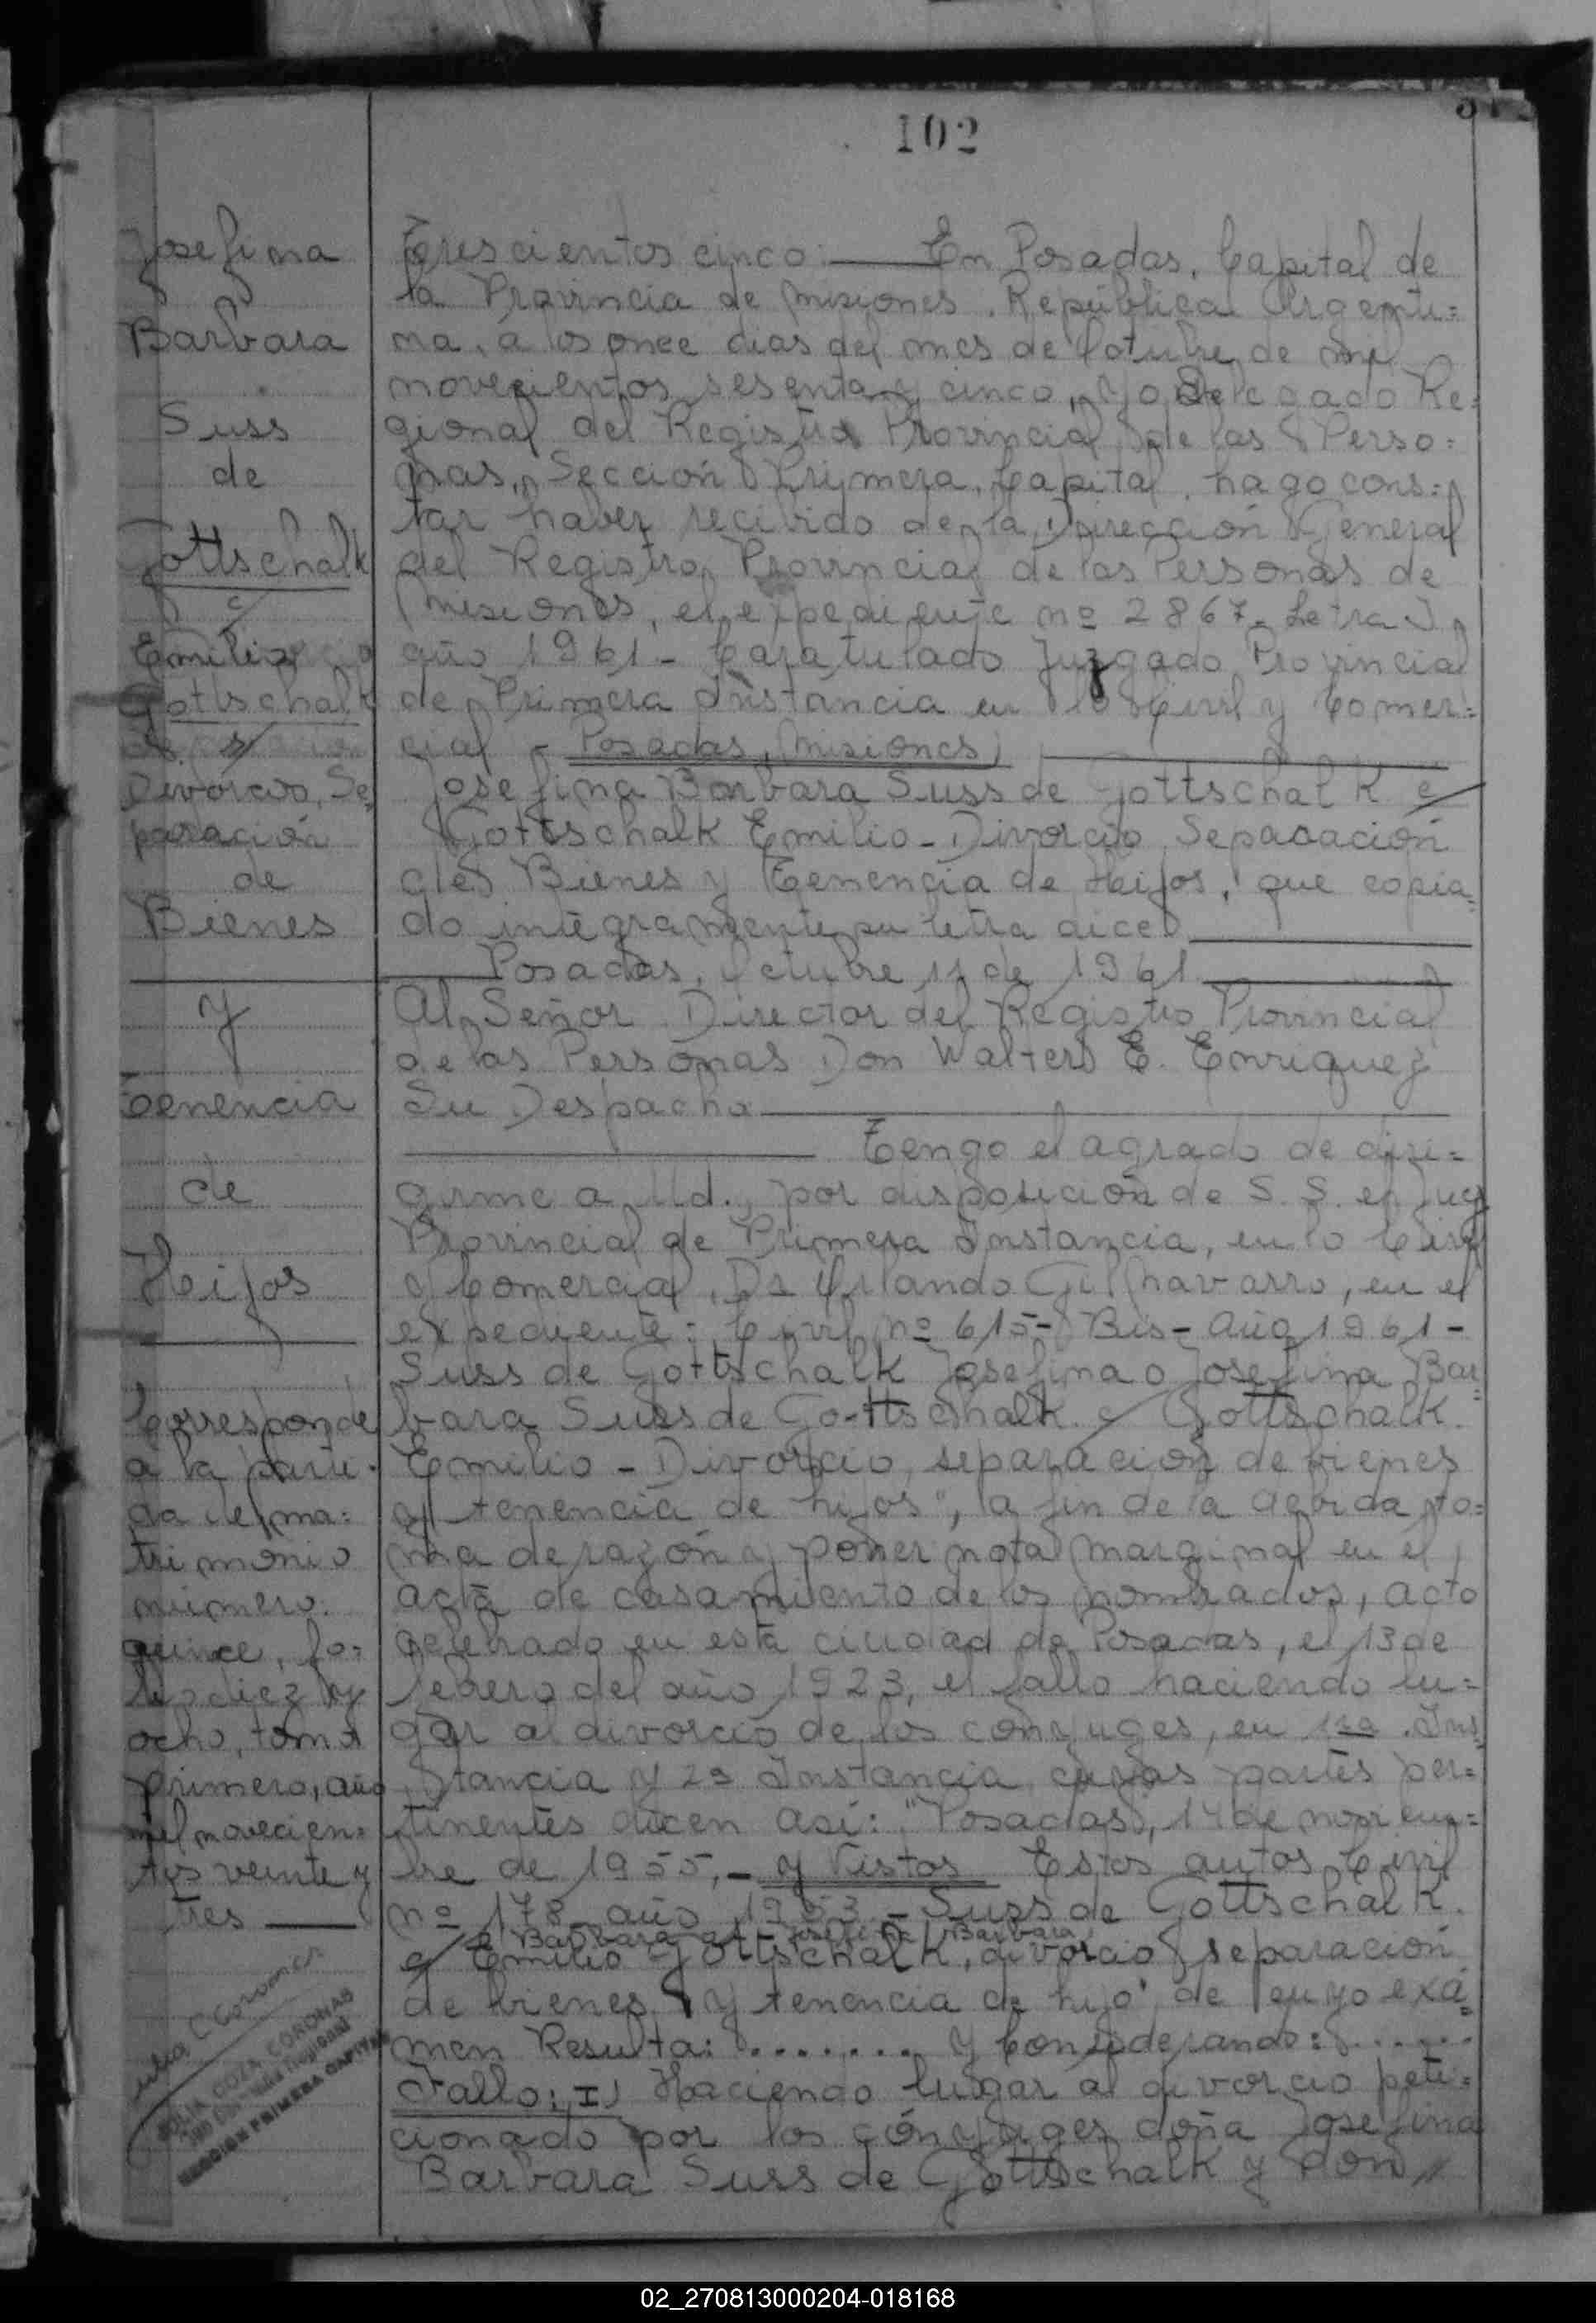 102
Josefina
Barbara
Suss
de
Gottschalk
c/
Emilio
Gottschalk
s/
Divorcio, Se=
paración
de
Bienes
y
Tenencia
de
Hijos
Corresponde
a la parti-
da de ma=
trimonio
número:
quince, fo=
lio diez y
ocho, tomo
primero, año
mil novecien=
tos veinte y
tres
Trescientos cinco: En Posadas, Capital de
la Provincia de Misiones, República Argenti=
na, a los once dias del mes de Octubre de mil
novecientos sesenta y cinco, yo Delegado Re=
gional del Registro Provincial de las Perso=
nas, Sección Primera, Capital, hago cons=
tar haber recibido de la Dirección General
del Registro Provincial de las Personas de
Misiones, el expediente nº 2867. Letra J.
año 1961 - Caratulado Juzgado Provincial
de Primera Instancia en lo Civil y Comer=
cial - Posadas, (Misiones)
Josefina Barbara Suss de Gottschalk c/
Gottschalk Emilio - Divorcio, Separación
de Bienes y Tenencia de Hijos, que copia=
do integramente su letra dice
Posadas, Octubre 11 de 1961.
Al Señor Director del Registro Provincial
de las Personas Don Walter E. Enriquez
Su Despacho
Tengo el agrado de diri=
girme a Ud., por disposición de S. S. el Juez
Provincial de Primera Instancia, en lo Civil
y Comercial, Dr Orlando Gil Navarro, en el
expediente: Civil nº 615 - Bis - Año 1961 -
Suss de Gottschalk Josefina o Josefina Bar=
bara Suss de Gottschalk c/ Gottschalk
Emilio - Divorcio, separación de bienes
y tenencia de hijos", a fin de la debida to=
ma de razón y poner nota marginal en el
acta de casamiento de los nombrados, acto
celebrado en esta ciudad de Posadas, el 13 de
febrero del año 1923, el fallo haciendo lu=
gar al divorcio de los conyuges, en 1ra. Ins
tancia y 2a Instancia, cuyas partes per=
tinentes dicen así: "Posadas, 14 de noviem=
bre de 1955. - y Vistos Estos autos Civil
nº 178 - año 1953 - Suss de Gottschalk
Barbara Josefina Barbara
c/ Emilio Gottschalk, divorcio, separación
de bienes y tenencia de hijo" de cuyo exá=
men Resulta: ........ y Considerando: ......
Fallo: I) Haciendo lugar al divorcio peti=
cionado por los cónyuges doña Josefina
Barbara Suss de Gottschalk y don //
JULIA COZA CORONAS
SECCION PRIMERA CAPITAL
02_270813000204-018168